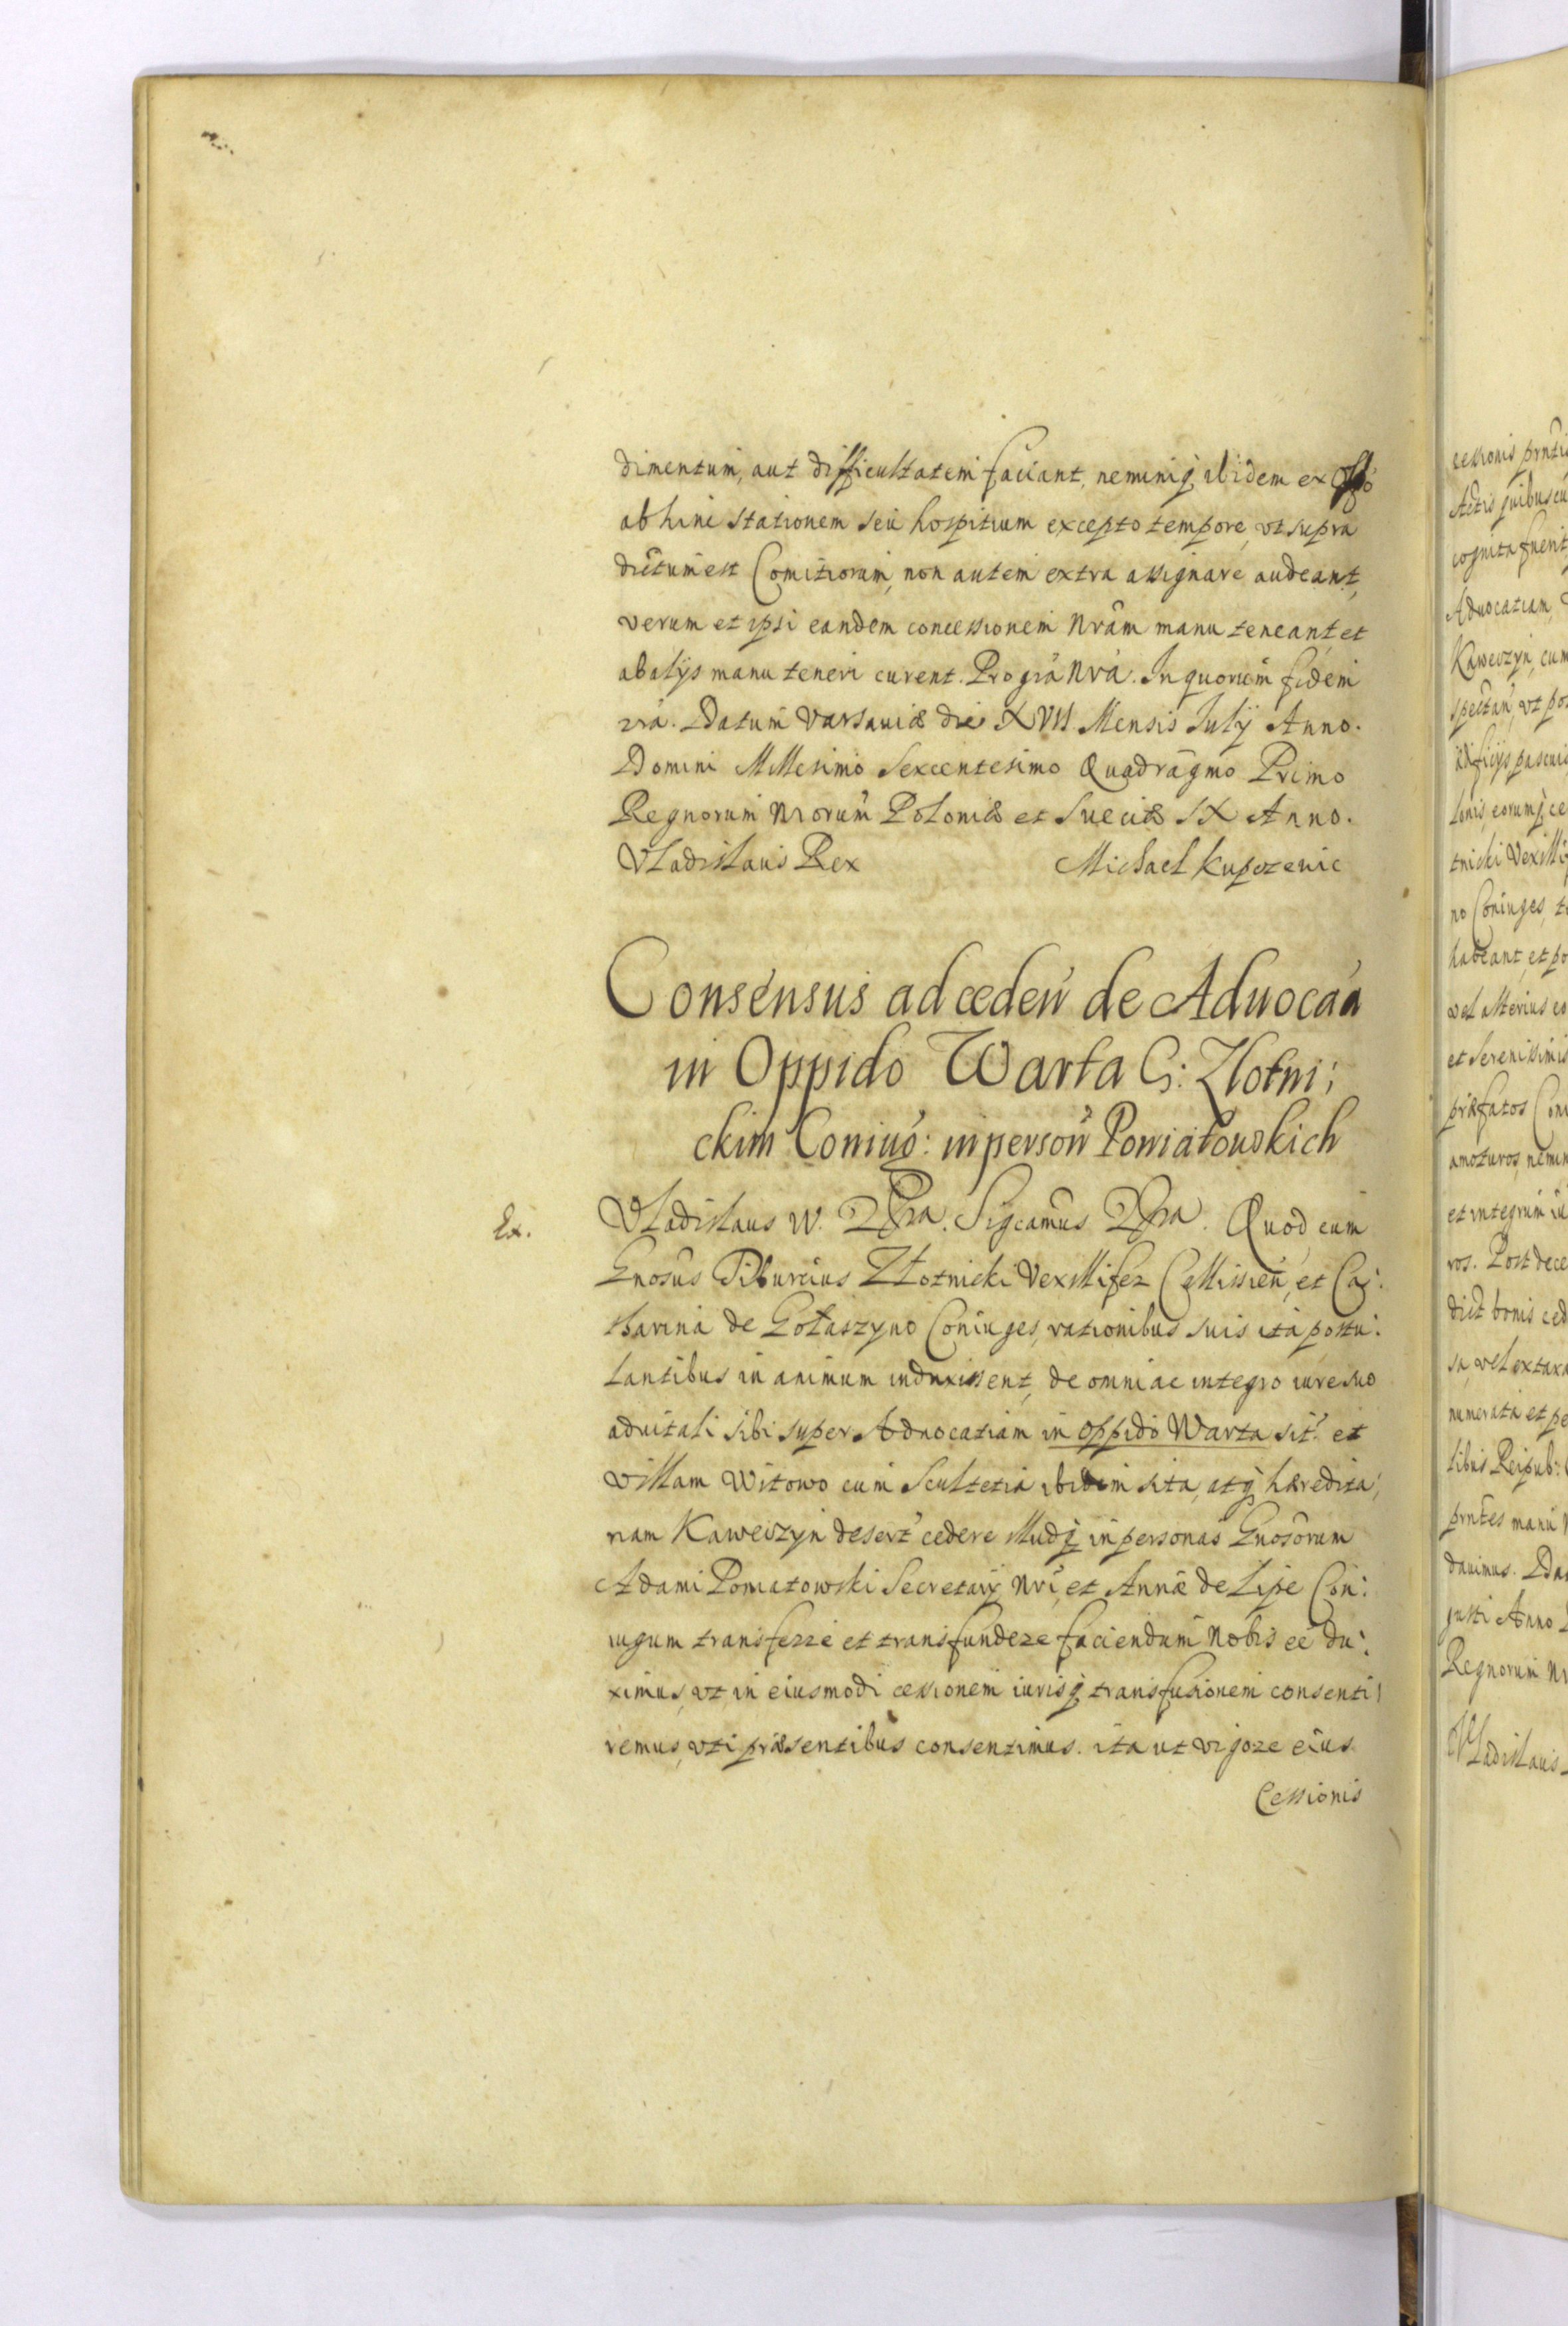 dimentum, aut difficultatem faciant, neminiq̃ ibidem ex Offo
ab hinc stationem seu hospitium excepto tempore, vt supra
dictum est Comitiorum, non autem extra assignare audeant,
verum et ipsi eandem concessionem Nrãm manu teneant, et
ab alijs manu teneri curent. Pro grã Nrã. In quorum fidem
Datum Varsaviæ die XVII Mensis Julÿ Anno.
Domini Millesimo Sexcentesimo Quadragmo Primo
Regnorum Nrorum Poloniæ et Sueciæ IX Anno.
Vladislaus Rex Michael
Consensus ad ceden̄ de Aduocãa
in Oppido Warta G: Zlotni:
ckim Coniug: in person̄ Poniatowskich
Ex. Vladislaus IV. Quod cum
Gnosus Tiburcius Złotnicki Vexillifer et Ca:
tharina de Gołaszyno Coniuges, rationibus suis ita postu:
lantibus in animum induxissent, de omni ac integro iure suo
aduitali sibi super Aduocatiam in Oppido Warta sit: et
Villam Witowo cum Scultetia ibidem sita, atq̃ hæredita:
riam Kaweczyn desert: cedere illudq̃ in personas Gnosorum
Adami Poniatowski Secretarÿ Nri, et Annæ de Lipe Con:
iugum transferre et transfundere faciendum Nobis eé du:
ximus, vt in eiusmodi cessionem iurisq̃ transfusionem consenti:
remus, vti præsentibus consentimus. ita ut vigore eius
Cessionis